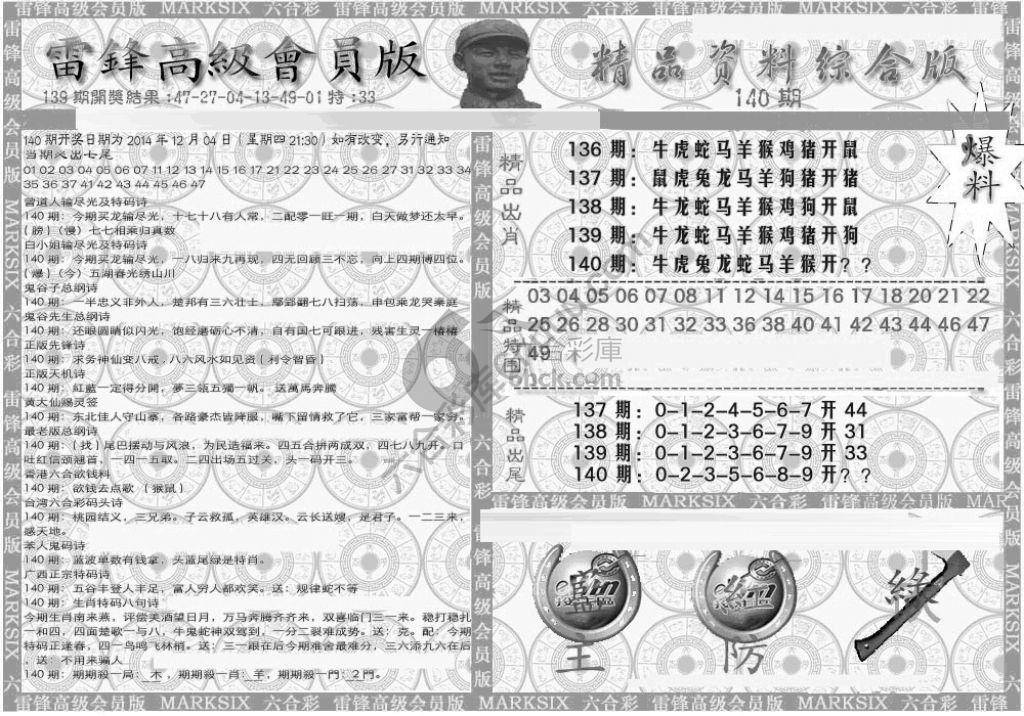 雷锋高级会员版 MARKSIX 六合彩 雷锋高级会员版 MARKSIX 六合彩 雷锋高级会员版 MARKSIX 六合彩 雷锋
雷鋒高級會員版
139 期開獎結果:47-27-04-13-49-01 特:33
精品资料综合版
140 期
爆料
140 期开奖日期为 2014 年 12 月 04 日(星期四 21:30)如有改变,另行通知
01 02 03 04 05 06 07 11 12 13 14 15 16 17 21 22 23 24 25 26 27 31 32 33 34
35 36 37 41 42 43 44 45 46 47
曾道人输尽光及特码诗
140 期:今期买龙输尽光,十七十八有人常,二配零一旺一期,白天做梦还太早。
(膀)(慢)七七相乘归真数
白小姐输尽光及特码诗
140 期:今期买龙输尽光,一八归来九再现,四无回顾三不忘,向上四期博四位。
(爆)(今)五湖春光绣山川
鬼谷子总纲诗
140 期:一半忠义非外人,楚邦有三六壮士,鄢郢翻七八扫荡,申包乘龙哭秦庭
鬼谷先生总纲诗
140 期:还眼圆睛似闪光,饱经磨砺心不清,自有国七可跟进,残害生灵一桩桩
正版先锋诗
140 期:求务神仙变八戒,八六风水如见资(利令智昏)
正版天机诗
140 期:紅藍一定得分開,夢三瓴五獨一帆。送萬馬奔騰
黄大仙赐灵签
140 期:东北佳人守山寨,各路豪杰皆降服,嘴下留情救了它,三家富帮一家穷。
最老版总纲诗
140 期:(找)尾巴摆动与风浪,为民造福来。四五合拼两成双,四七八九开。口
吐红信颈翘首,一四一五取。二四出场五过关,头一码开三。
香港六合欲钱料
140 期:欲钱去点歌 (猴鼠)
台湾六合彩码头诗
140 期:桃园结义,三兄弟。子云救孤,英雄汉。云长送嫂,是君子。一二三来,
感天地。
本人鬼码诗
140 期:蓝波单数有钱拿,头蓝尾绿是特肖。
广西正宗特码诗
140 期:五谷丰登人丰足,富人穷人都欢笑。送:规律蛇不等
140 期:生肖特码八句诗
今期生肖南来燕,评偿美酒望日月,万马奔腾齐齐来,双喜临门三一来。稳打稳扎
一和四,四面楚歌一与八,牛鬼蛇神双驾到,一分二裂难成势。送:克。配:今期
特码正逢春,四一鸟鸣飞林梢。送:三一跟在后今期难舍最难分,三六添九六在后
,送:不用来骗人
140 期:期期殺一局:木,期期殺一肖:羊,期期殺一門:2門。
精品出肖
136 期:牛虎蛇马羊猴鸡猪开鼠
137 期:鼠虎兔龙马羊狗猪开猪
138 期:牛龙蛇马羊猴鸡狗开鼠
139 期:牛龙蛇马羊猴鸡猪开狗
140 期:牛虎兔龙蛇马羊猴开??
精品特围
03 04 05 06 07 08 11 12 13 14 15 16 17 18 20 21 22
25 26 28 30 31 32 33 36 38 40 41 42 43 44 46 47
49
合彩庫
6hck.com
精品出尾
137 期:0-1-2-4-5-6-7 开 44
138 期:0-1-2-3-6-7-9 开 31
139 期:0-1-2-3-6-7-9 开 33
140 期:0-2-3-5-6-8-9 开??
雷锋高级会员版 MARKSIX 六合彩 雷锋高级会员版 MARKSIX
主
防
綠
雷锋高级会员版 MARKSIX 六合彩 雷锋高级会员版 MARKSIX 六合彩 雷锋高级会员版 MARKSIX 六合彩 雷锋